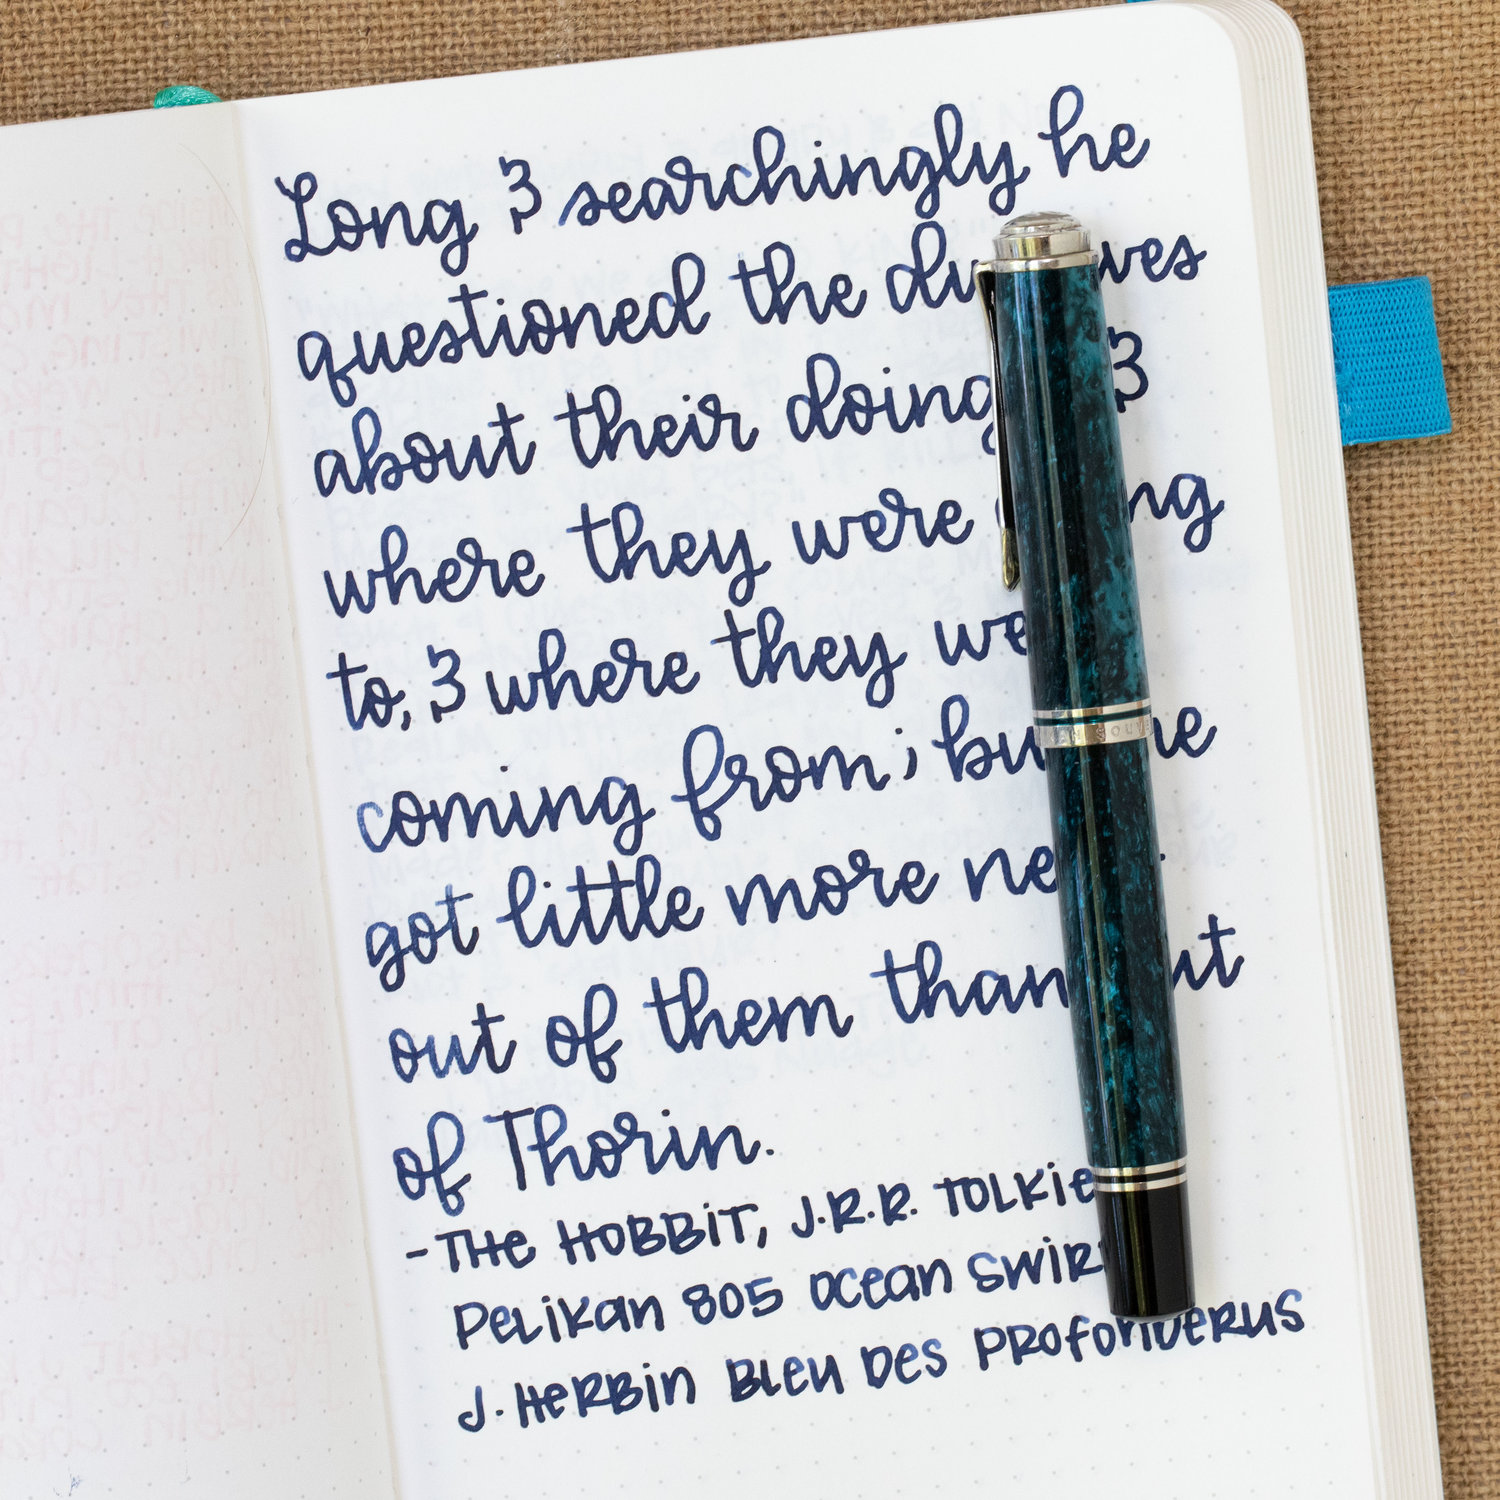 Long & searchingly he
questioned the dwarves
about their doings &
where they were going
to, & where they were
coming from; but he
got little more news
out of them than out
of Thorin.
-THE HOBBIT, J.R.R. TOLKIEN
PELIKAN 805 OCEAN SWIRL
J. HERBIN BLEU DES PROFONDERUS